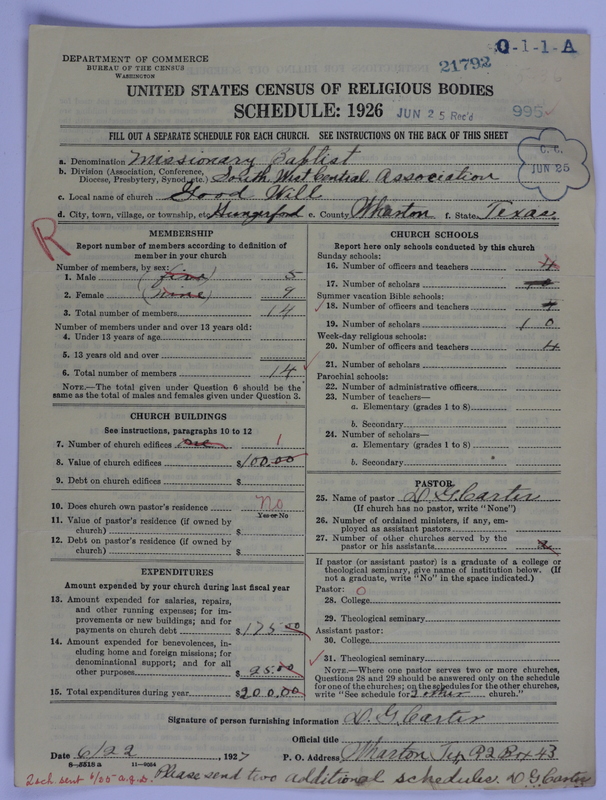 O-1-1-A
21792
DEPARTMENT OF COMMERCE
BUREAU OF THE CENSUS
WASHINGTON
UNITED STATES CENSUS OF RELIGIOUS BODIES
SCHEDULE: 1926 JUN 25 Rec'd 995
FILL OUT A SEPARATE SCHEDULE FOR EACH CHURCH. SEE INSTRUCTIONS ON THE BACK OF THIS SHEET
C. C.
JUN 25
a. Denomination Missionary Baptist
b. Division (Association, Conference, Diocese, Presbytery, Synod, etc.) South West Central Association
c. Local name of church Good Will
d. City, town, village, or township, etc. Hungerford e. County Wharton f. State Texas
R
MEMBERSHIP
Report number of members according to definition of
member in your church
Number of members, by sex:
1. Male (five) 5
2. Female (nine) 9
3. Total number of members 14
Number of members under and over 13 years old:
4. Under 13 years of age
5. 13 years old and over
6. Total number of members 14
NOTE.—The total given under Question 6 should be the
same as the total of males and females given under Question 3.
CHURCH BUILDINGS
See instructions, paragraphs 10 to 12
7. Number of church edifices one 1
8. Value of church edifices $100.00
9. Debt on church edifices $
10. Does church own pastor's residence? No
Yes or No
11. Value of pastor's residence (if owned by
church) $
12. Debt on pastor's residence (if owned by
church) $
EXPENDITURES
Amount expended by your church during last fiscal year
13. Amount expended for salaries, repairs,
and other running expenses; for im-
provements or new buildings; and for
payments on church debt $175.00
14. Amount expended for benevolences, in-
cluding home and foreign missions; for
denominational support; and for all
other purposes $25.00
15. Total expenditures during year $200.00
CHURCH SCHOOLS
Report here only schools conducted by this church
Sunday schools:
16. Number of officers and teachers 4
17. Number of scholars 10
Summer vacation Bible schools:
18. Number of officers and teachers 4
19. Number of scholars 10
Week-day religious schools:
20. Number of officers and teachers 4
21. Number of scholars
Parochial schools:
22. Number of administrative officers
23. Number of teachers—
a. Elementary (grades 1 to 8)
b. Secondary
24. Number of scholars—
a. Elementary (grades 1 to 8)
b. Secondary
PASTOR
25. Name of pastor D. G. Carter
(If church has no pastor, write "None")
26. Number of ordained ministers, if any, em-
ployed as assistant pastors
27. Number of other churches served by the
pastor or his assistants 2
If pastor (or assistant pastor) is a graduate of a college or
theological seminary, give name of institution below. (If
not a graduate, write "No" in the space indicated.)
Pastor: O
28. College
29. Theological seminary
Assistant pastor:
30. College
31. Theological seminary
NOTE.—Where one pastor serves two or more churches,
Questions 28 and 29 should be answered only on the schedule
for one of the churches; on the schedules for the other churches,
write "See schedule for 2 other church."
Signature of person furnishing information D. G. Carter
Official title
Date 6/22, 1927 P. O. Address Wharton Tex R2 Box 43
8—5518 a 11—9024
2 sch. sent 6/25 a.g.s. Please send two additional schedules. D G Carter